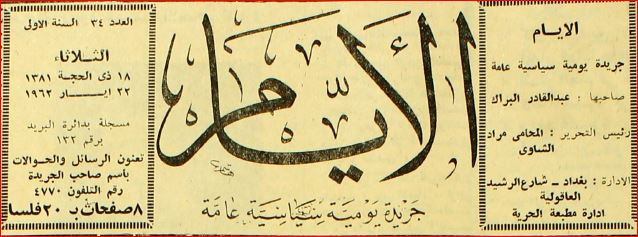 الايام
جريدة يومية سياسية عامة
صاحبها : عبدالقادر البراك
رئيس التحرير : المحامي مراد
الشاوى
الادارة : بغداد ـ شارع الرشيد
العاقولية
ادارة مطبعة الحرية
الأيام
جريدة يومية سياسية عامة
العدد ٣٤ السنة الاولى
الثلاثاء
١٨ ذى الحجة ١٣٨١
٢٢ ايار ١٩٦٢
مسجلة بدائرة البريد
برقم ١٣٢
تعنون الرسائل والحوالات
باسم صاحب الجريدة
رقم التلفون ٤٧٧٠
٨ صفحات بـ ٢٠ فلسا